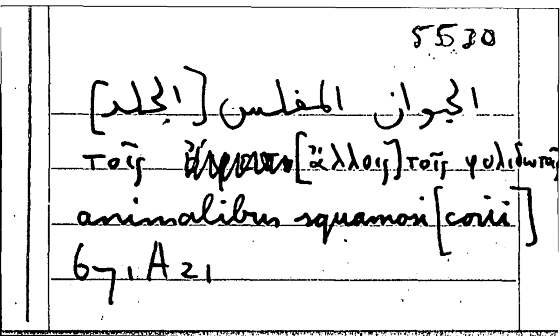 5530
الحيوان المفلس [الجلد]
τοῖς [ἄλλοις] τοῖς φολιδωτοῖς
animalibus squamosi [corii]
671 A 21